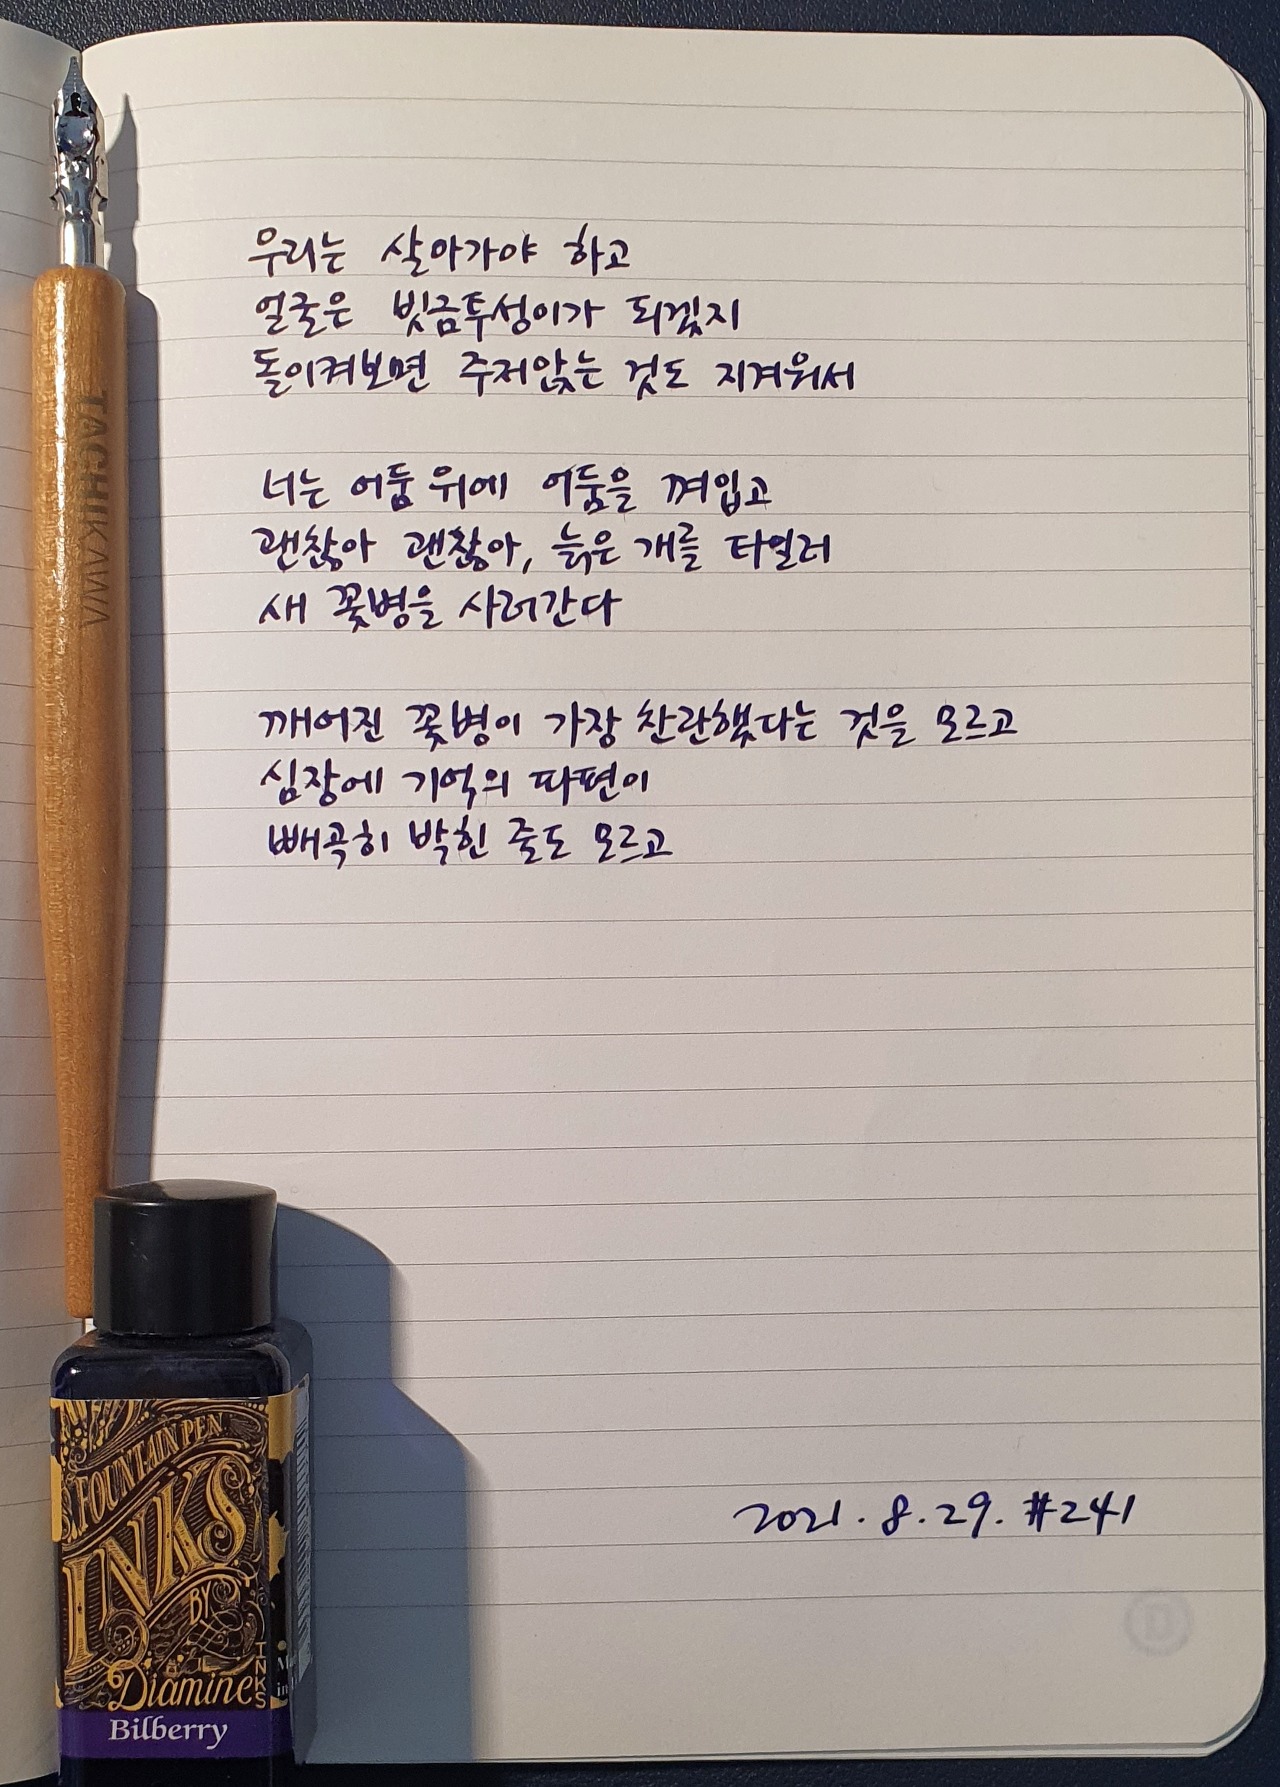 우리는 살아가야 하고
얼굴은 빗금투성이가 되겠지
돌이켜보면 주저앉는 것도 지겨워서
너는 어둠 위에 어둠을 껴입고
괜찮아 괜찮아, 늙은 개를 타일러
새 꽃병을 사러간다
깨어진 꽃병이 가장 찬란했다는 것을 모르고
심장에 기억의 파편이
빼곡히 박힌 줄도 모르고
2021. 8. 29. #241
TACHIKAWA
FOUNTAIN PEN
INKS
BY
Diamine
INKS
Bilberry
D